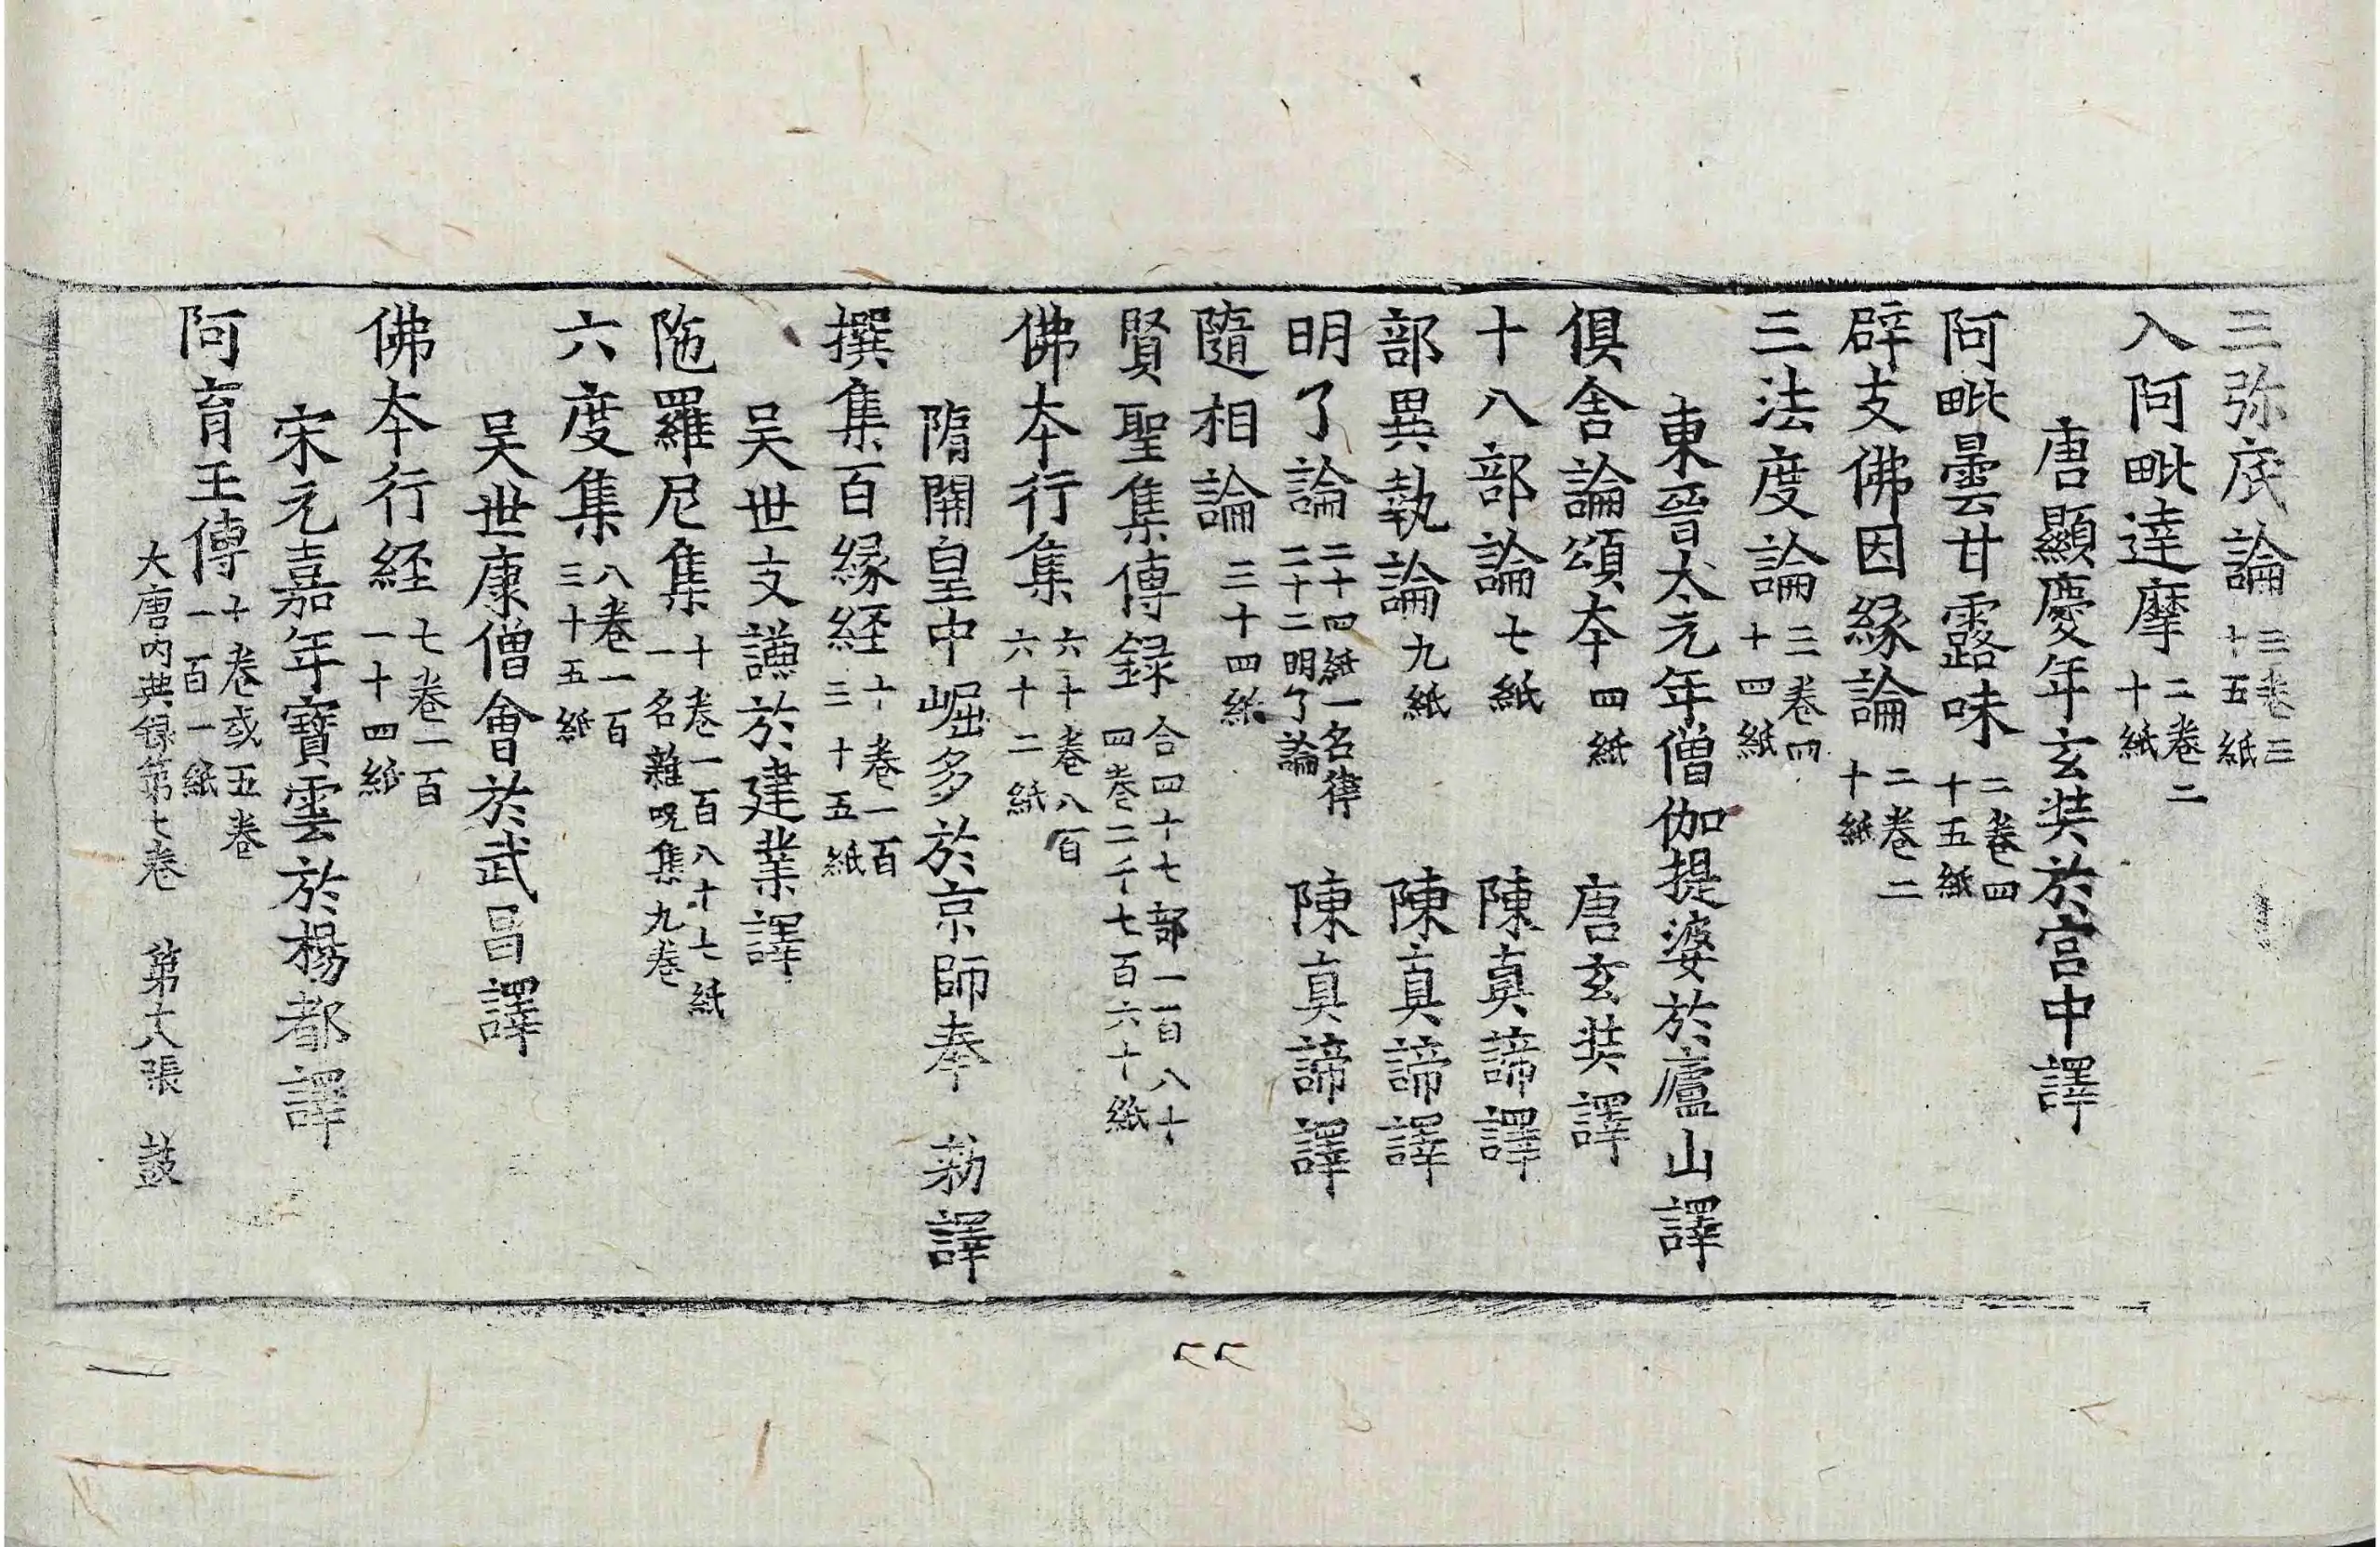 三弥底論三卷三十五紙
入阿毗達摩二卷二十紙
唐顯慶年玄奘於宫中譯
阿毗曇甘露味二卷四十五紙
辟支佛因縁論二卷二十紙
三法度論三卷四十四紙
東晉太元年僧伽提婆於廬山譯
俱舍論頌本四紙 唐玄奘譯
十八部論七紙 陳真諦譯
部異執論九紙 陳真諦譯
明了論二十四紙一名律二十二明了論 陳真諦譯
隨相論三十四紙
賢聖集傳録合四十七部一百八十四卷二千七百六十紙
佛本行集六十卷八百六十二紙
隋開皇中崛多於京師奉 勑譯
撰集百縁経十卷一百三十五紙
吴世支謙於建業譯
陁羅尼集十卷一百八十七紙一名雜呪集九卷
六度集八卷一百三十五紙
吴世康僧會於武昌譯
佛本行経七卷一百一十四紙
宋元嘉年寶雲於楊都譯
阿育王傳十卷或五卷一百一紙
大唐内典録第七卷 第十八張 鼓